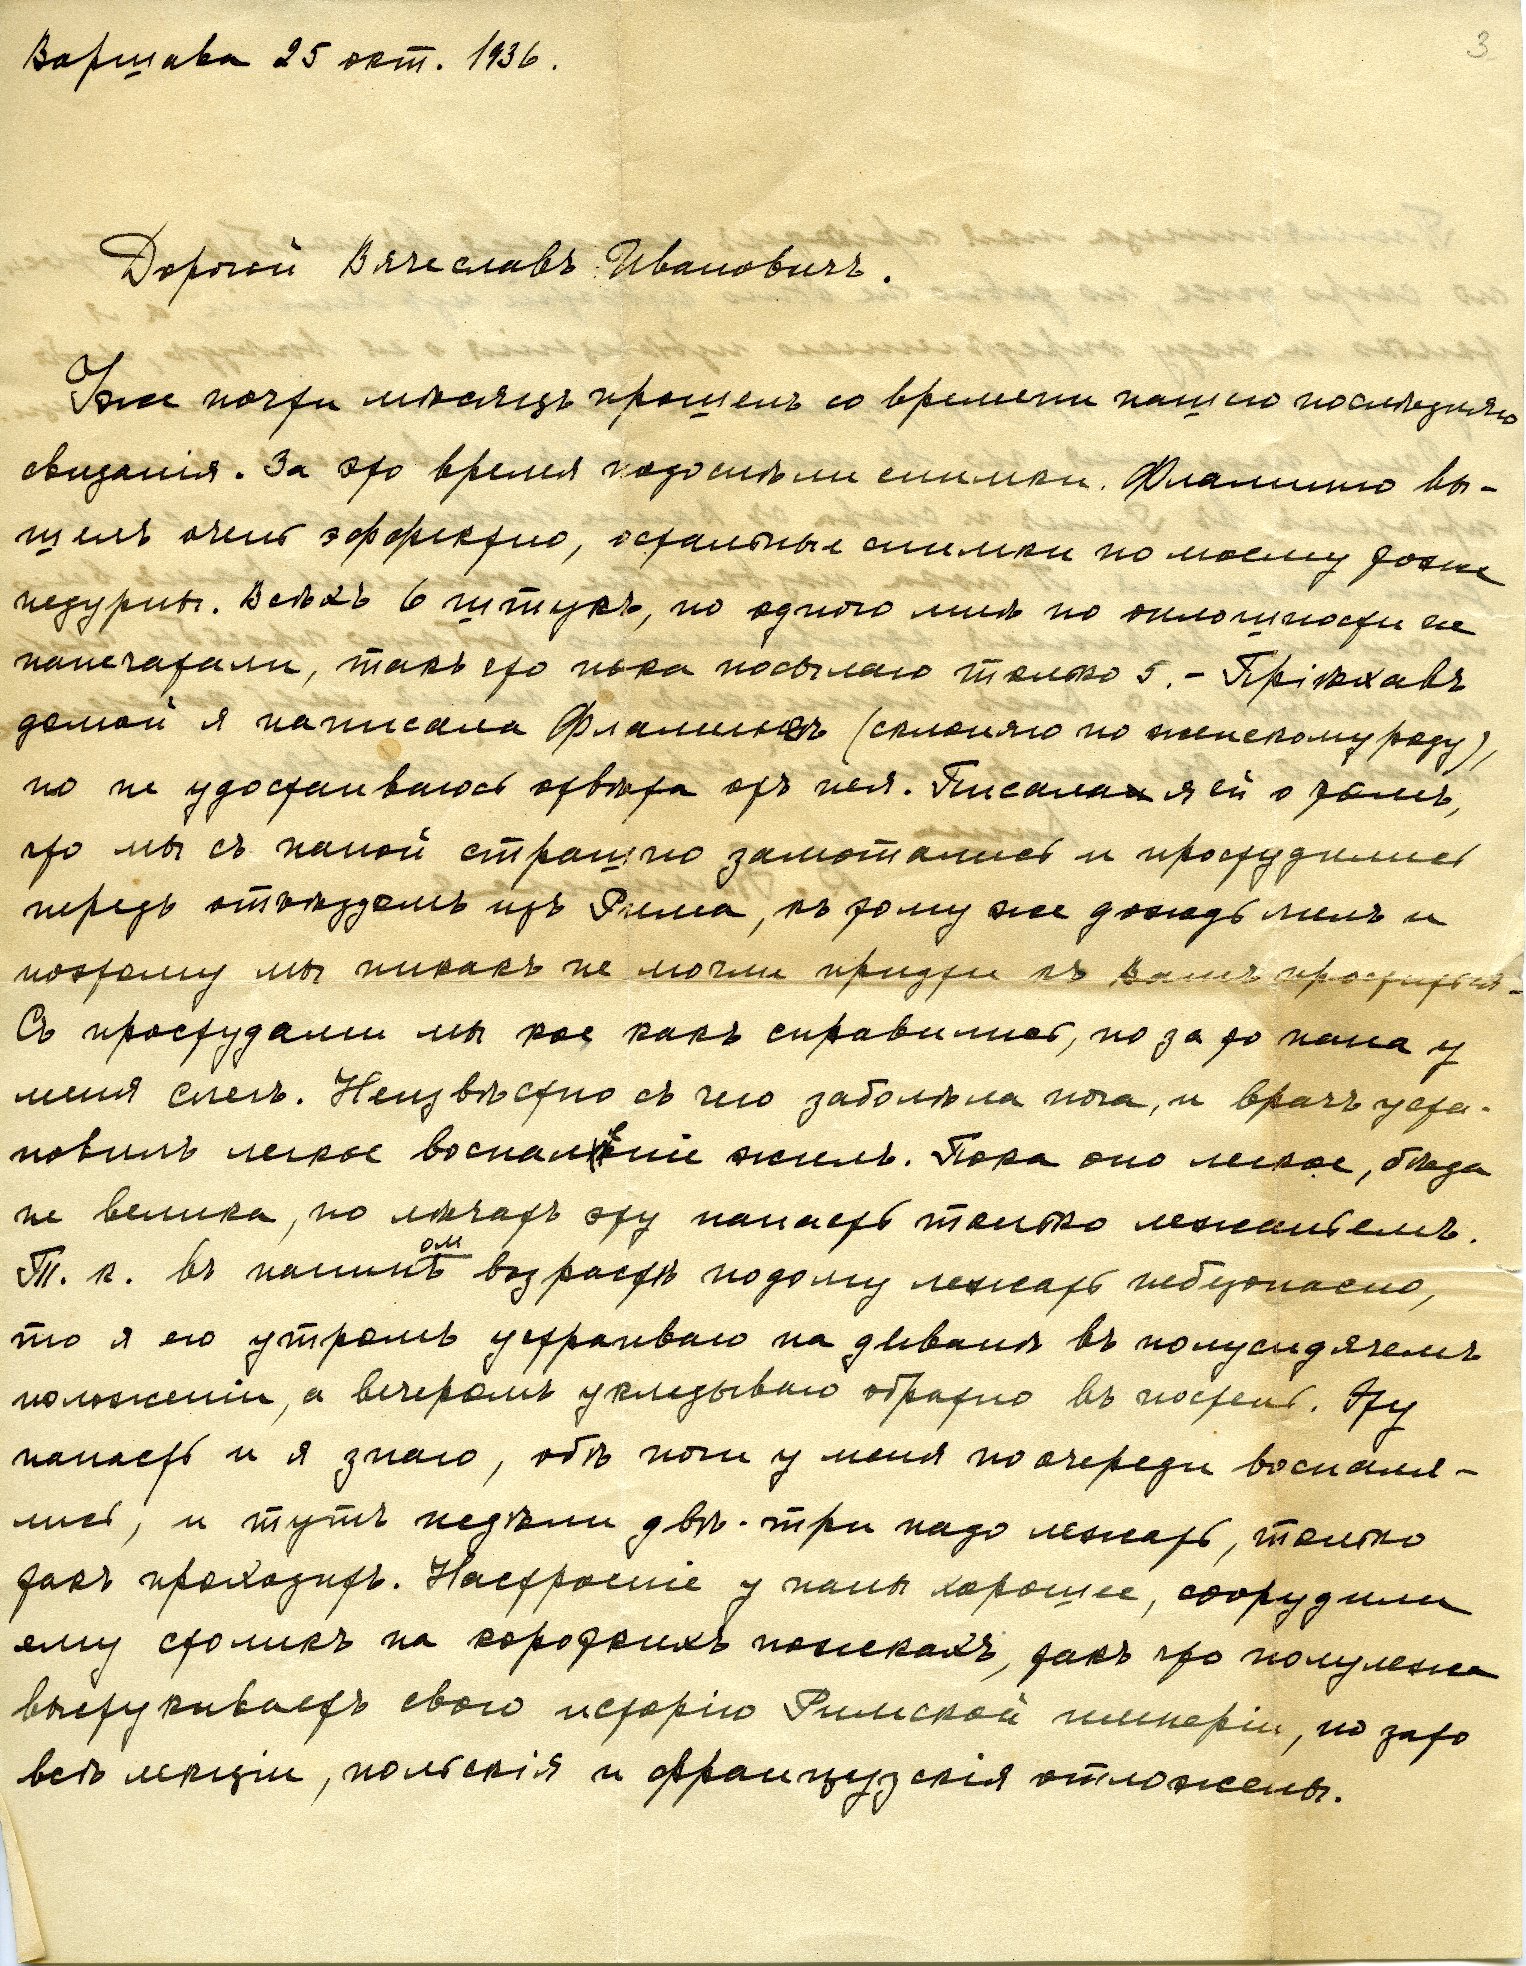 3
Варшава 25 окт. 1936.
Дорогой Вячеславъ Ивановичъ.
Уже почти мѣсяцъ прошелъ со времени нашего послѣдняго
свиданія. За это время подоспѣли снимки. Фламинго вы-
шелъ очень эффектно, остальные снимки по моему тоже
недурны. Всѣхъ 6 штукъ, но одного мнѣ по оплошности не
напечатали, такъ что пока посылаю только 5. – Пріѣхавъ
домой я написала (склоняю по женскому роду),
но не удостаиваюсь отвѣта отъ нея. Писала я ей о томъ,
что мы съ папой страшно замотались и простудились
передъ отъѣздомъ изъ Рима, къ тому же дождь лилъ и
поэтому мы никакъ не могли придти къ Вамъ проститься.
Съ простудами мы кое какъ справились, но за то папа у
меня слегъ. Неизвѣстно съ чего заболѣла нога, и врачъ уста-
новилъ легкое воспаленіе жилъ. Пока оно легкое, бѣда
не велика, но лѣчатъ эту напасть только лежаньемъ.
Т. к. въ папиномъ возрастѣ подолгу лежать небезопасно,
то я его утромъ устраиваю на диванѣ въ полусидячемъ
положеніи, а вечеромъ укладываю обратно въ постель. Эту
напасть и я знаю, обѣ ноги у меня по очереди воспаля-
лись, и тутъ недѣли двѣ-три надо лежать, только
такъ проходитъ. Настроеніе у папы хорошее, соорудили
ему столикъ на короткихъ ножкахъ, такъ что полулежа
выстукиваетъ свою исторію Римской имперіи, но зато
всѣ лекціи, польскія и французскія отложены.